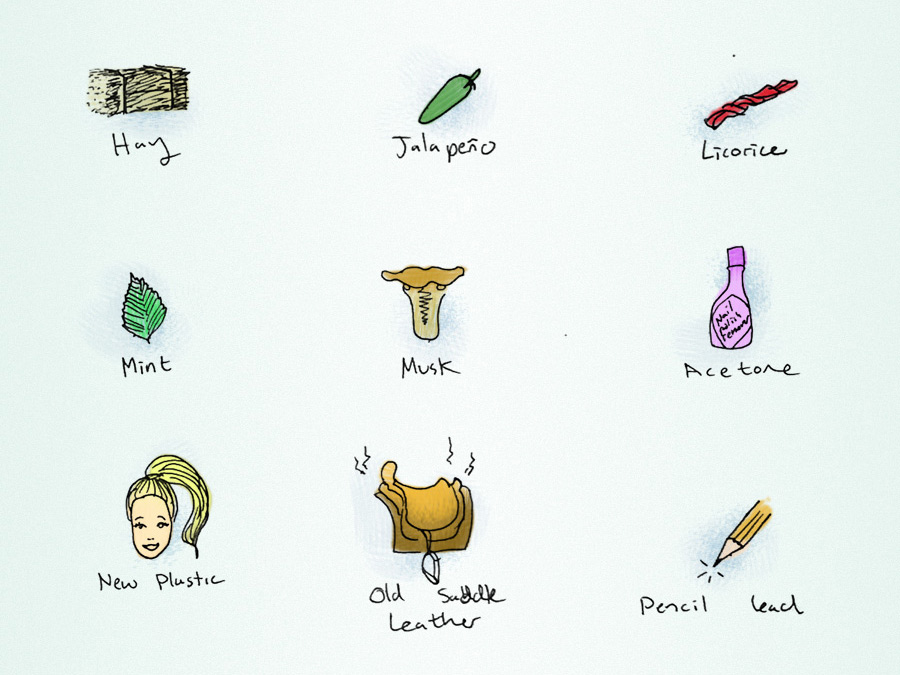 Hay
Jalapeño
Licorice
Mint
Musk
Nail
Polish
Remover
Acetone
New Plastic
Old Saddle
Leather
Pencil lead